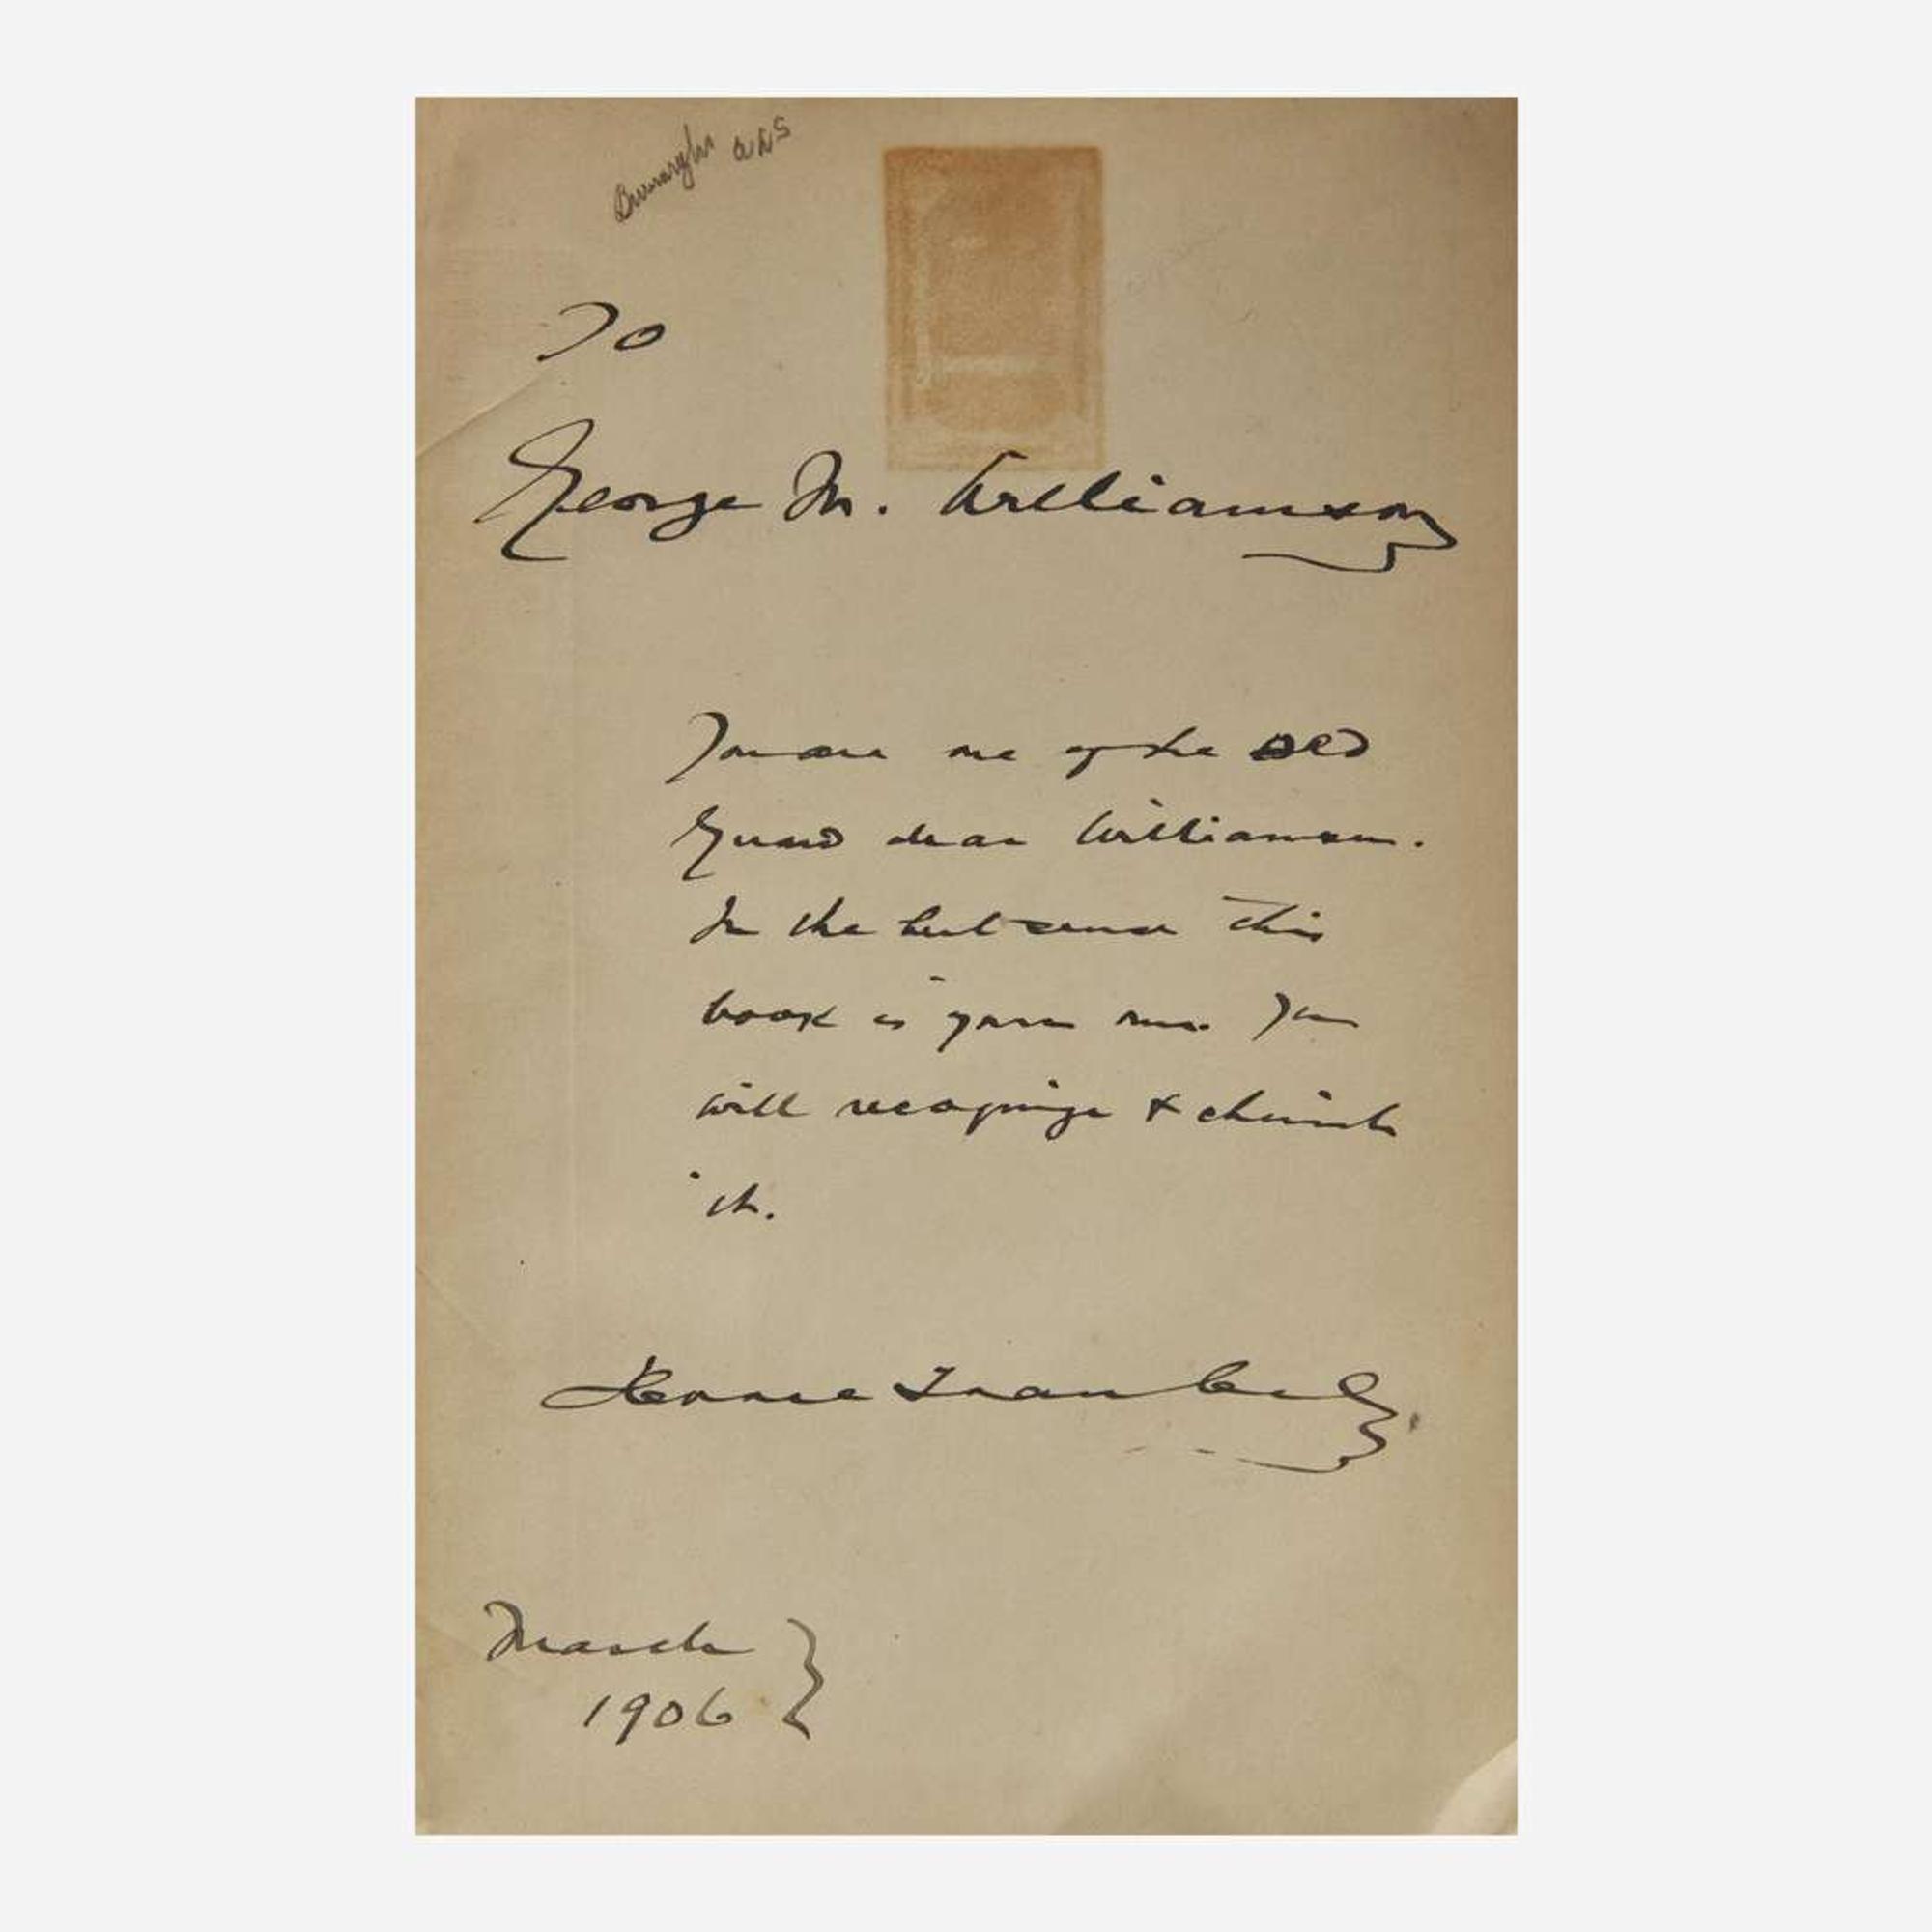 Burroughs ALS
To
George M. Williamson
You are one of the Old
Guard dear Williamson.
In the best sense this
book is yours now. You
will recognize & cherish
it.
Horace Traubel
March
1906